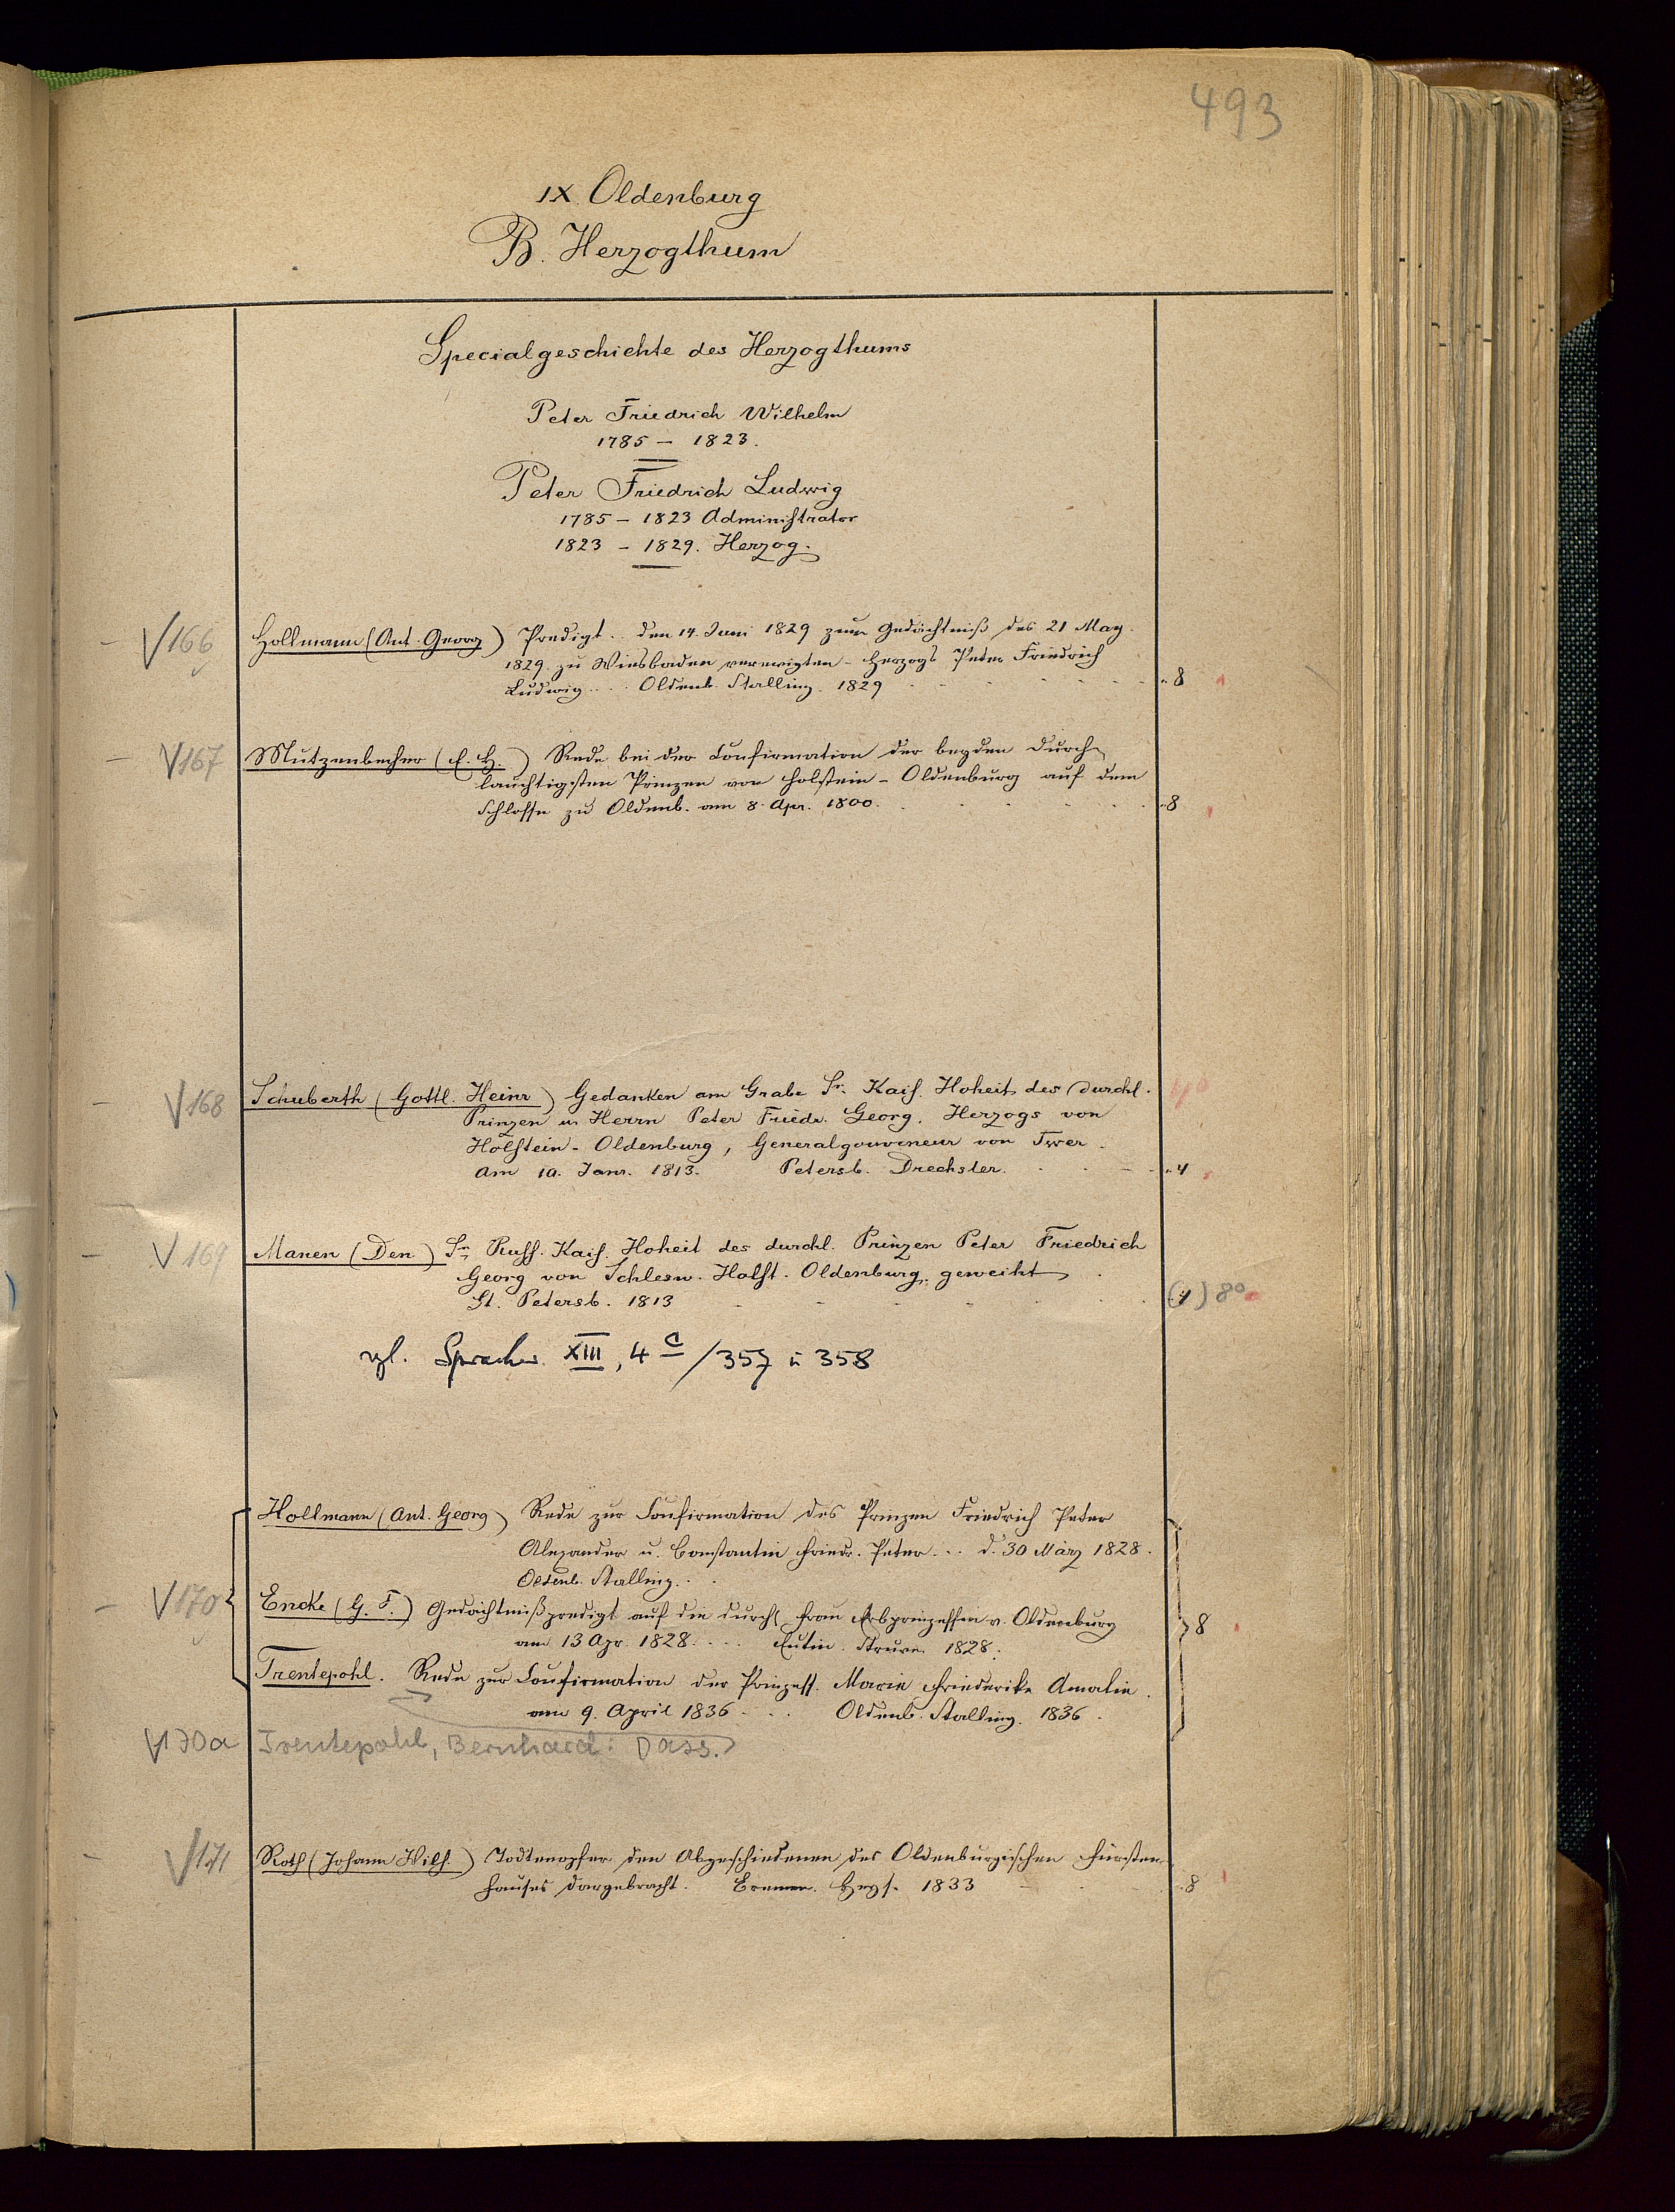 493
IX Oldenburg
B. Herzogthum
Specialgeschichte des Herzogthums
Peter Friedrich Wilhelm
1785 – 1823.
Peter Friedrich Ludwig
1785 – 1823 Administrator
1823 – 1829. Herzog.
V 166 Hollmann (Ant. Georg) Predigt.. den 14. Juni 1829 zum Gedächtniß des 21 May.
1829. zu Wiesbaden verewigten - Herzogs Peter Friedrich
Ludwig.... Oldenb. Stalling. 1829 8
V 167 Mutzenbecher (E. H.) Rede bei der Confirmation der beyden Durch-
lauchtigsten Prinzen von Holstein - Oldenburg auf dem
Schlosse zu Oldenb. am 8. Apr. 1800. 8
V 168 Schuberth (Gottl. Heinr) Gedanken am Grabe Sr. Kais. Hoheit des Durchl. 4°
Prinzen u. Herrn Peter Friedr. Georg. Herzogs von
Holstein - Oldenburg, Generalgouverneur von Twer.
am 10. Janr. 1813. Petersb. Drechsler. 4
V 169 Manen (Den) Sr. Russ. Kais. Hoheit des durchl. Prinzen Peter Friedrich
Georg von Schlesw. Holst. Oldenburg, geweiht
St. Petersb. 1813 (4) 8°
vgl. Sprachw. XIII, 4 c /357 u 358
Hollmann (Ant. Georg) Rede zur Confirmation des Prinzen Friedrich Peter
Alexander u. Constantin Friedr. Peter... d. 30 März 1828.
Oldenb. Stalling..
V 170 Encke (G. F.) Gedächtnißpredigt auf die durchl. Frau Erbprinzessin v. Oldenburg 8
am 13 Apr. 1828.... Eutin. Struve. 1828.
Trentepohl. Rede zur Confirmation der Prinzess. Marie Friederike Amalie.
am 9. April 1836... Oldenb. Stalling. 1836.
V 170a Trentepohl, Bernhard: Dass.
V 171 Roth (Johann Wilh.) Todtenopfer den Abgeschiedenen des Oldenburgischen Fürsten-
hauses dargebracht. Bremen. Heyse. 1833 8
6